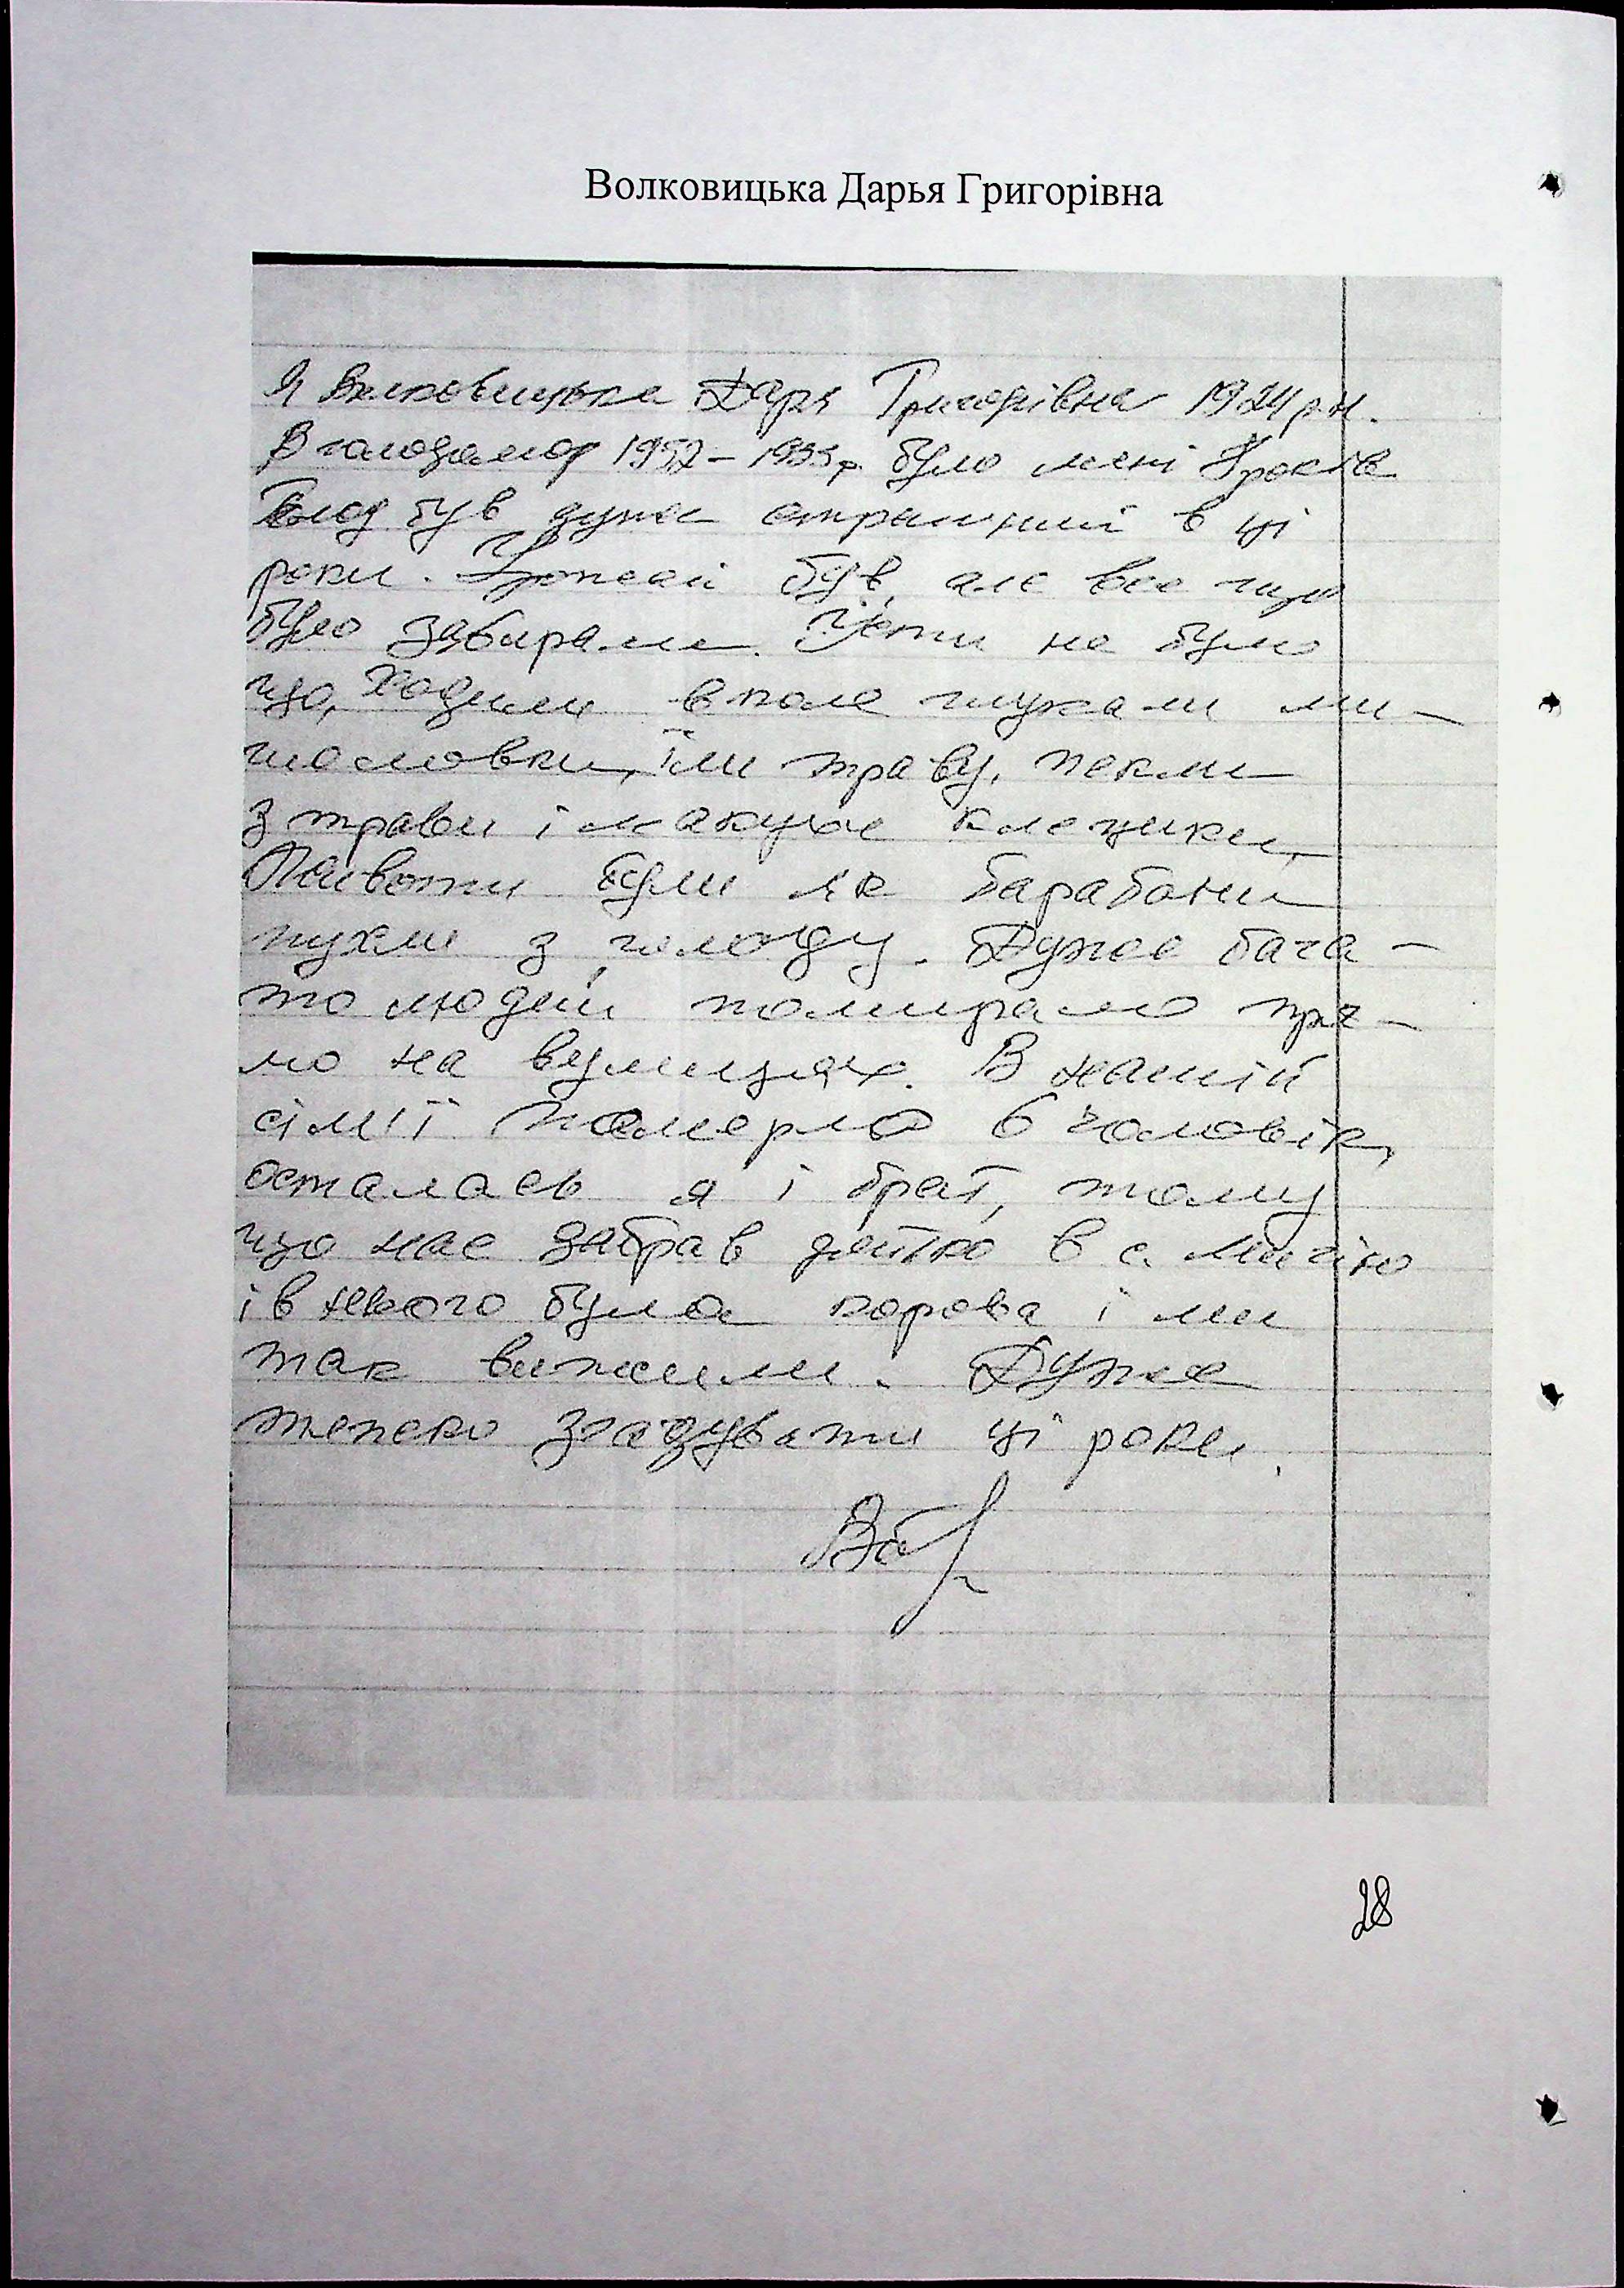 Волковицька Дарья Григорівна
Я Волковицька Даря Григорівна 1924 р.н.
В голодомор 1932 – 1933 р. було мені 8 років
Голод був дуже страшний в ці
роки. Урожай був, але все що
було забирали. Їсти не було
що, Ходили в поле шукали ми-
шаловки, їли траву, пекли
з трави і макухи клецики,
Животи були як барабани
пухли з голоду. Дуже бага-
то людей помирало пря-
мо на вулицях. В нашій
сім'ї померло 6 чоловік,
осталась я і брат, тому
що нас забрав дядько в с.
і в нього була корова і ми
так вижили. Дуже
тяжко згадувати ці роки.
28